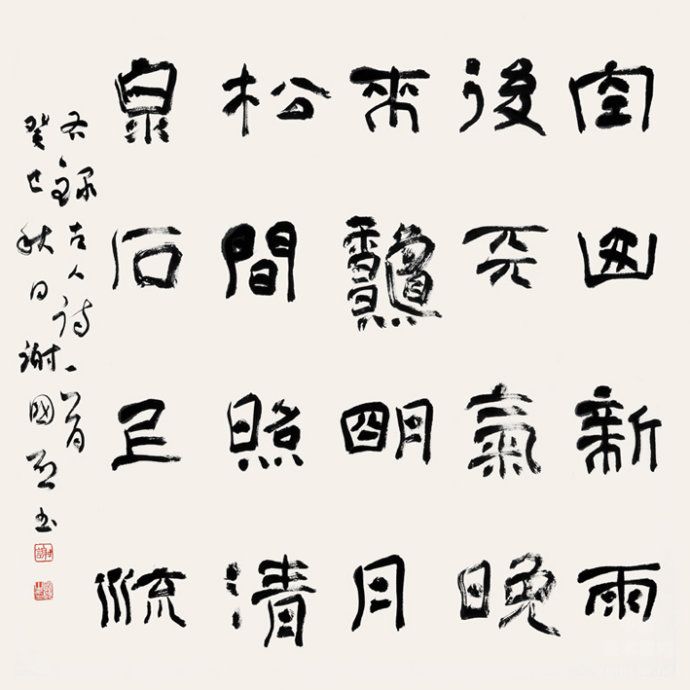 空山新雨
後天氣晚
來龝明月
松間照清
泉石上流
右錄古人詩一首
癸巳秋日謝國书